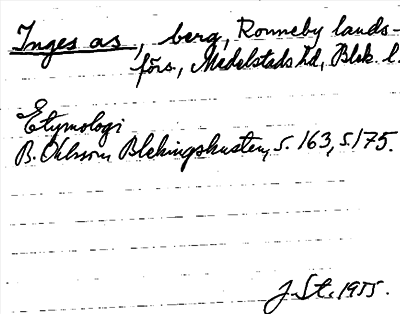 Inges as, berg, Ronneby lands-
förs., Medelstads hd, Blek. l.
Etymologi
B. Ohlsson, Blekingskusten, s. 163, s. 175.
J. St. 1955.